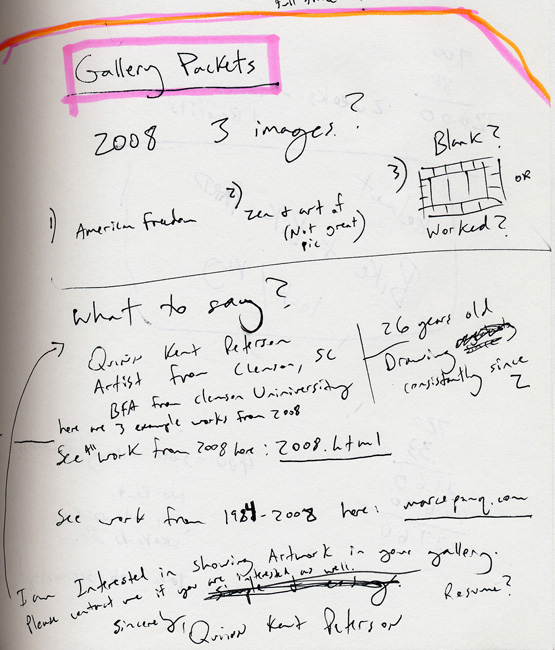 Gallery Packets
2008 3 images?
1) American Freedom
2) Zen & art of
(Not great
pic)
3) Blank?
OR
Worked?
What to say?
Quinn Kent Peterson
Artist from Clemson, SC
BFA from Clemson Uniniversity
here are 3 example works from 2008
See All work from 2008 here: 2008.html
26 years old
Drawing
consistantly since
2
See work from 1984-2008 here: marcepunq.com
I am Interested in showing Artwork in your gallery.
Please contact me if you are interested as well.
Resume?
Sincerely,
Quinn Kent Peterson